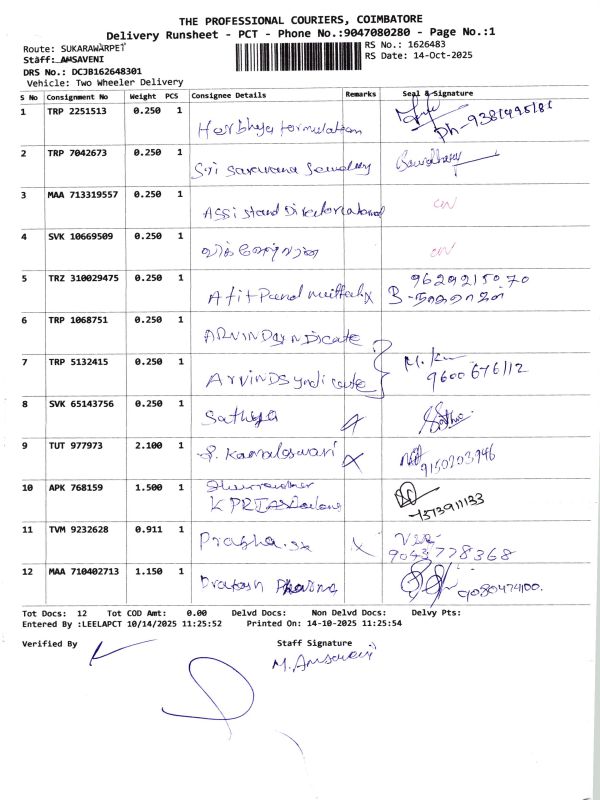 THE PROFESSIONAL COURIERS, COIMBATORE
Delivery Runsheet - PCT - Phone No.:9047080280 - Page No.:1
Route: SUKARAWARPET
RS No.: 1626483
Staff: AMSAVENI
RS Date: 14-Oct-2025
DRS No.: DCJB162648301
Vehicle: Two Wheeler Delivery
S No Consignment No Weight PCS Consignee Details Remarks Seal & Signature
1 TRP 2251513 0.250 1 Herbhya formulation
Ph-9381995181
2 TRP 7042673 0.250 1 Sri Saravana Jewellery
3 MAA 713319557 0.250 1
4 SVK 10669509 0.250 1
5 TRZ 310029475 0.250 1 9629215070
6 TRP 1068751 0.250 1 ARVIND Syndicate
7 TRP 5132415 0.250 1 ArvinD Syndicate
9600676112
8 SVK 65143756 0.250 1 Sathya
9 TUT 977973 2.100 1 S. Kamaleswari
9150203946
10 APK 768159 1.500 1
11 TVM 9232628 0.911 1
9043778368
12 MAA 710402713 1.150 1 Prakash Pharma
Tot Docs: 12 Tot COD Amt: 0.00 Delvd Docs: Non Delvd Docs: Delvy Pts:
Entered By :LEELAPCT 10/14/2025 11:25:52 Printed On: 14-10-2025 11:25:54
Verified By Staff Signature
M. Amsaveni